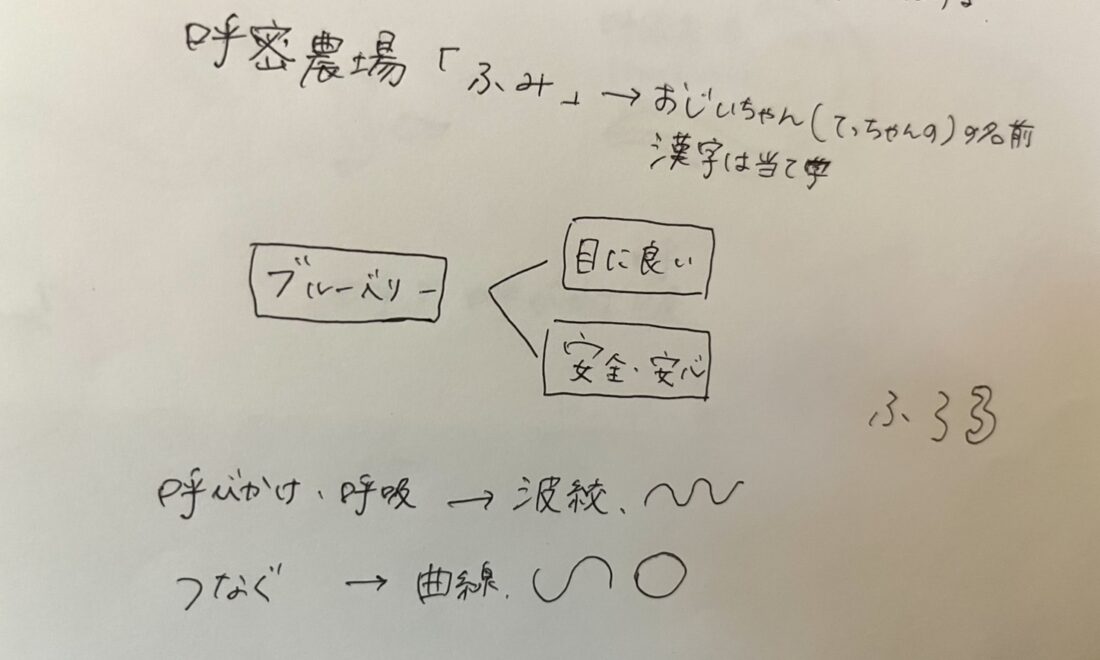 呼密農場「ふみ」→おじいちゃん(てっちゃんの)の名前
漢字は当て字
ブルーベリー
目に良い
安全・安心
ふ
呼びかけ、呼吸 → 波紋、
つなぐ → 曲線、